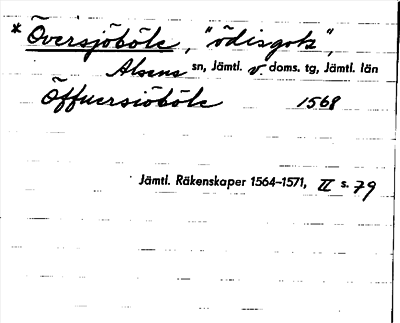 * Översjöböle, "ödisgots",
Alsens sn, Jämtl. v. doms. tg, Jämtl. län
Öffuersiöböle 1568
Jämtl. Räkenskaper 1564–1571, II s. 79